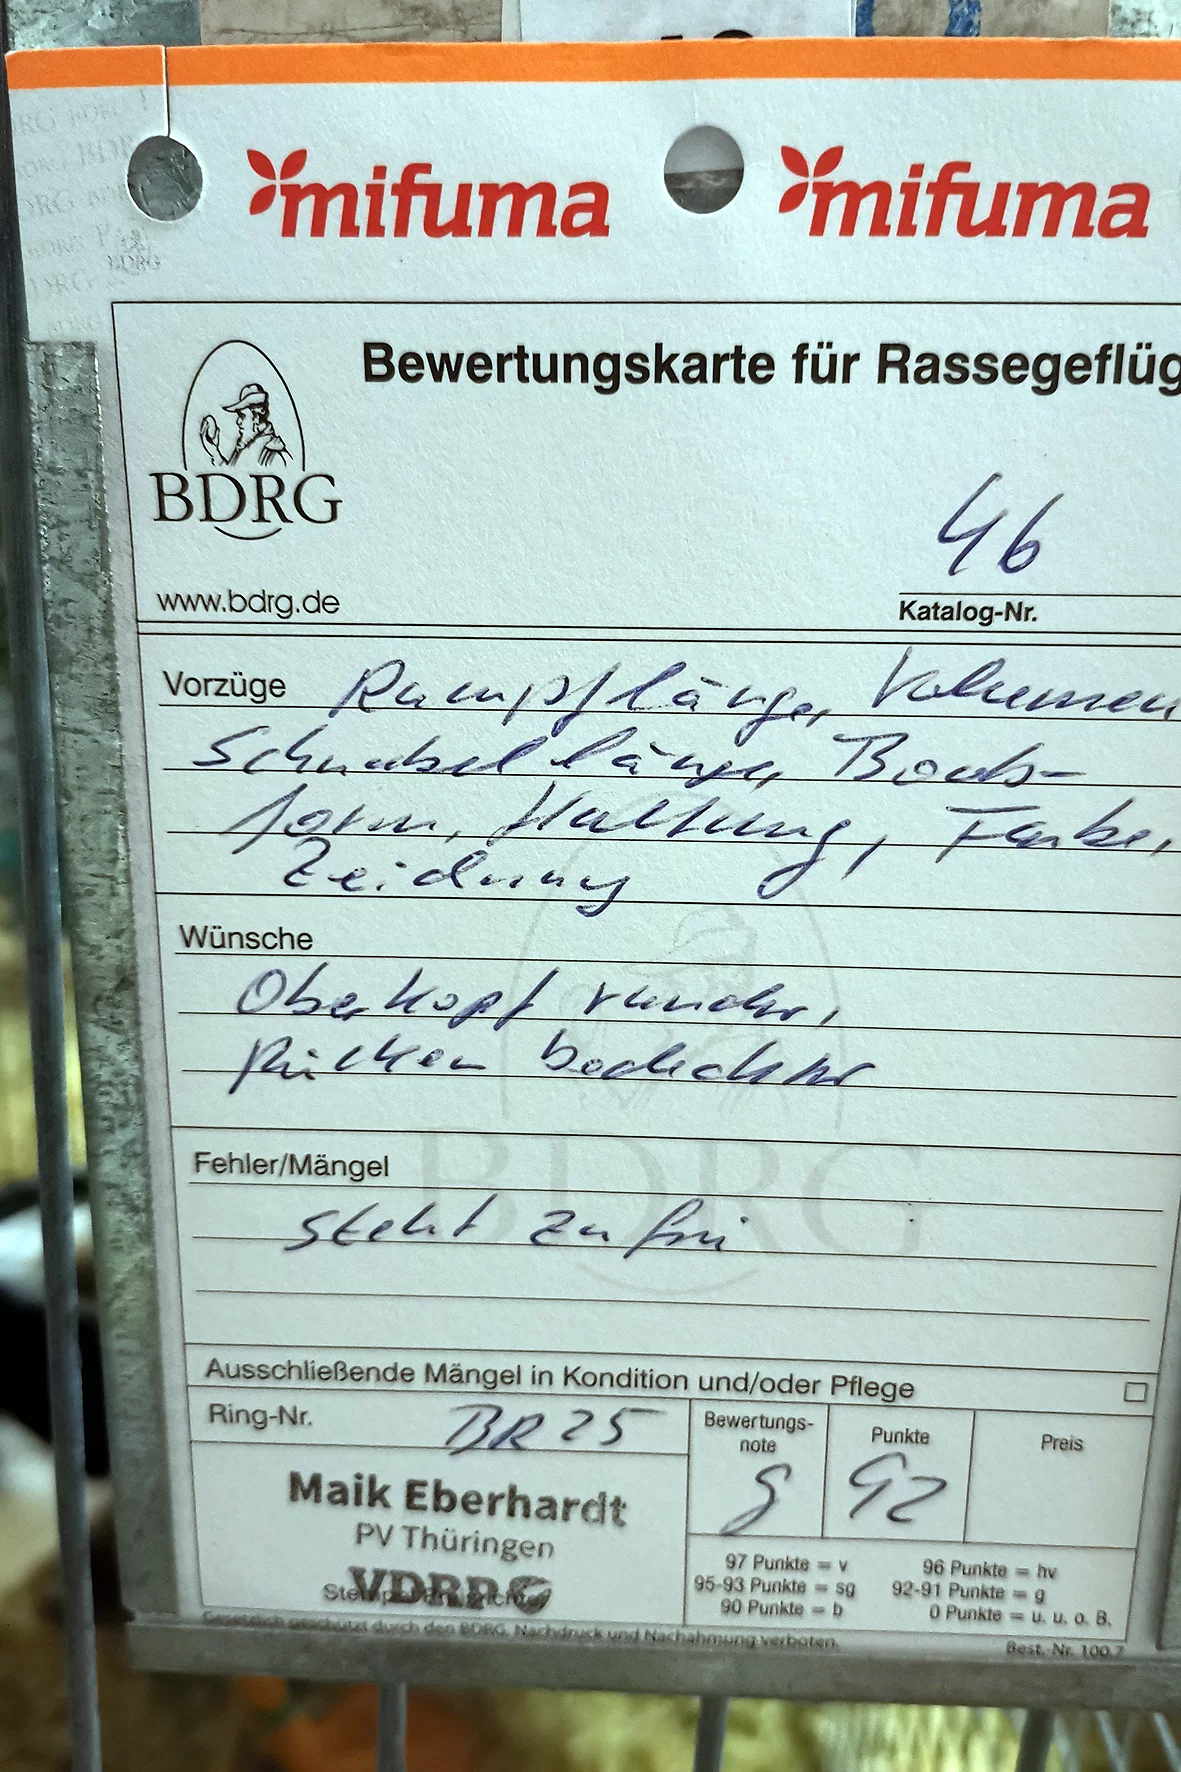 mifuma mifuma
Bewertungskarte für Rassegeflüg
BDRG
www.bdrg.de
46
Katalog-Nr.
Vorzüge Rumpflänge, Volumen
Schnabellänge, Boots-
form, Haltung, Farbe,
Zeichnung
Wünsche
Oberkopf runder,
Rücken bedeckter
Fehler/Mängel
steht zu frei
Ausschließende Mängel in Kondition und/oder Pflege
Ring-Nr. BR 25
Bewertungs-
note
g
Punkte
92
Preis
Maik Eberhardt
PV Thüringen
VDRP
97 Punkte = v 96 Punkte = hv
95-93 Punkte = sg 92-91 Punkte = g
90 Punkte = b 0 Punkte = u. u. o. B.
Gesetzlich geschützt durch den BDRG, Nachdruck und Nachahmung verboten.
Best.-Nr. 100.7